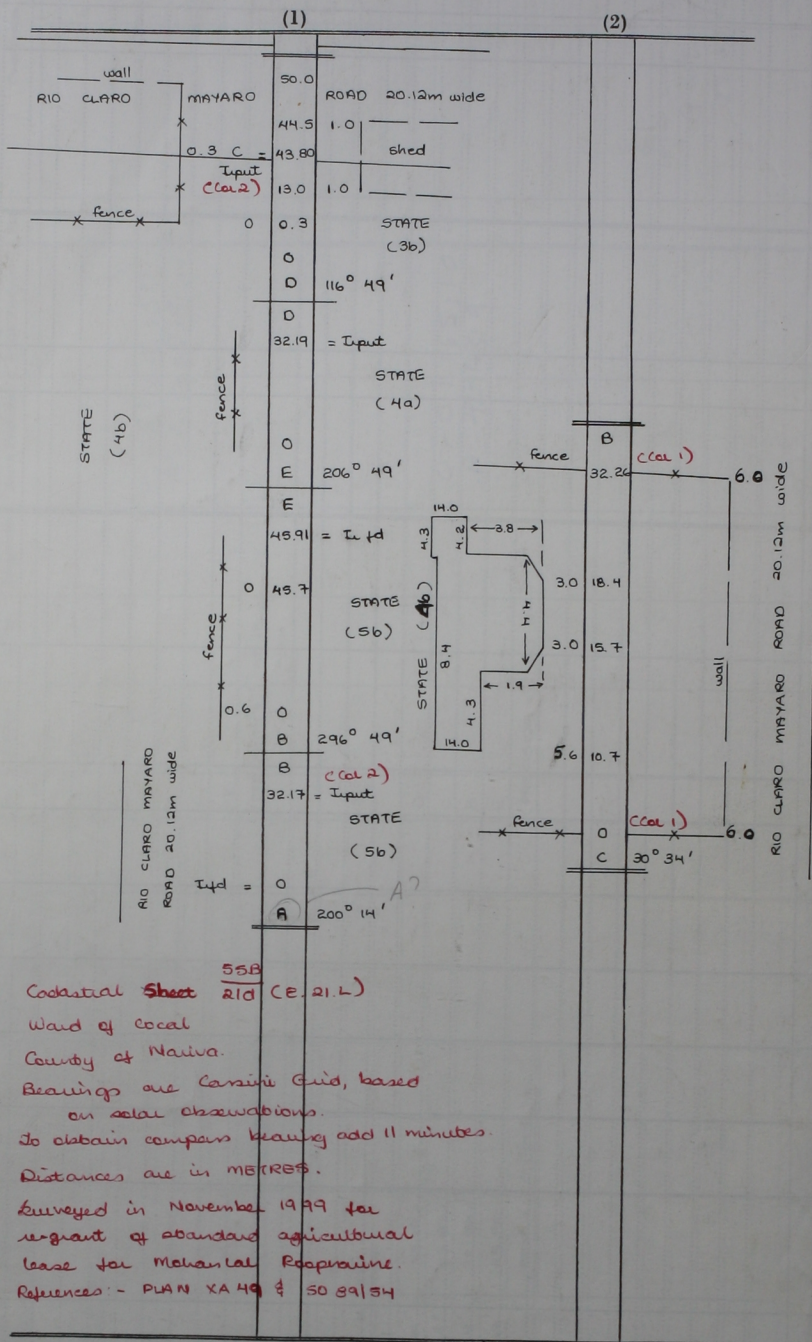 (1)
wall
50.0
RIO CLARO MAYARO ROAD 20.12m wide
44.5 1.0
0.3 C = 43.80 shed
Iput
(Col 2) 13.0 1.0
fence 0 0.3 STATE
(3b)
O
D 116° 49'
D
32.19 = Iput
fence
STATE
(4a)
STATE
(4b)
O
E 206° 49'
E
45.91 = I fd
0 45.7
fence
STATE
(5b)
0.6 O
B 296° 49'
B (Col 2)
32.17 = Iput
STATE
(5b)
RIO CLARO MAYARO
ROAD 20.12m wide
Ifd = O
A?
A 200° 14'
(2)
B
fence (Col 1)
32.26 6.0
14.0
4.3 4.2 3.8
3.0 18.4
4.4
STATE (4b)
8.4
3.0 15.7
1.9
4.3
14.0
5.6 10.7
wall
RIO CLARO MAYARO ROAD 20.12m wide
fence O (Col 1) 6.0
C 30° 34'
Cadastral Sheet 55B/21d (E. 21.L)
Ward of Cocal
County of Nariva.
Bearings are Cassini Grid, based
on solar observations.
To obtain compass bearing add 11 minutes.
Distances are in METRES.
Surveyed in November 1999 for
re-grant of standard agricultural
lease for Mohanlal
References:- PLAN XA 49 & SO 89/54